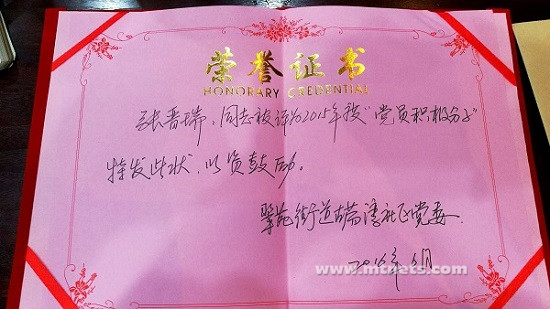 荣誉证书
HONORARY CREDENTIAL
张晋瑞 同志被评为2015年度"党员积极分子"
特发此状，以资鼓励。
翠苑街道古荡湾社区党委
www.mtnets.com